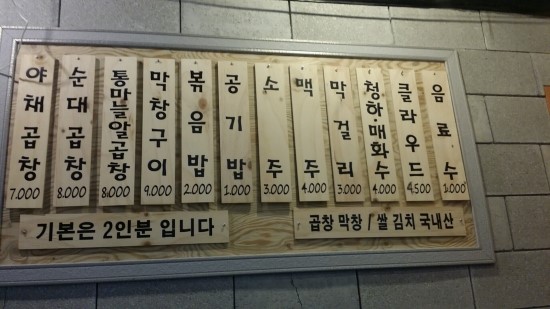 야채곱창 7.000
순대곱창 8.000
통마늘알곱창 8.000
막창구이 9.000
볶음밥 2.000
공기밥 1.000
소주 3.000
맥주 4.000
막걸리 3.000
청하·매화수 4.000
클라우드 4.500
음료수 1.000
기본은 2인분 입니다
곱창 막창 / 쌀 김치 국내산